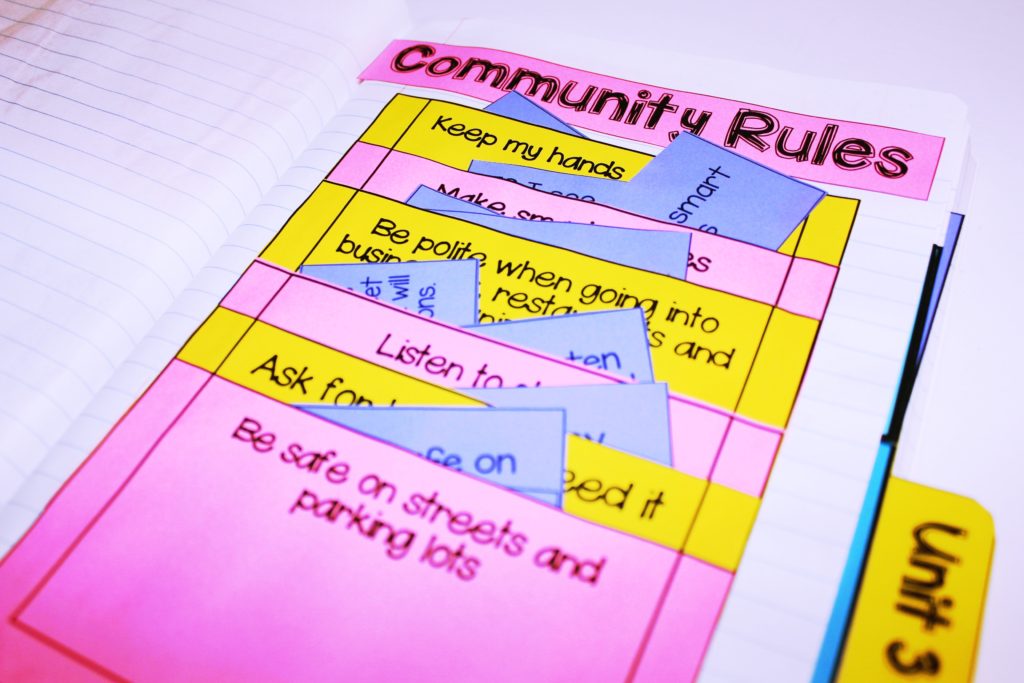 Community Rules
Keep my hands
smart
I see
Make
Be polite when going into
and
will
ons.
Listen to
Ask for
eed it
fe on
Be safe on streets and
parking lots
Unit 3